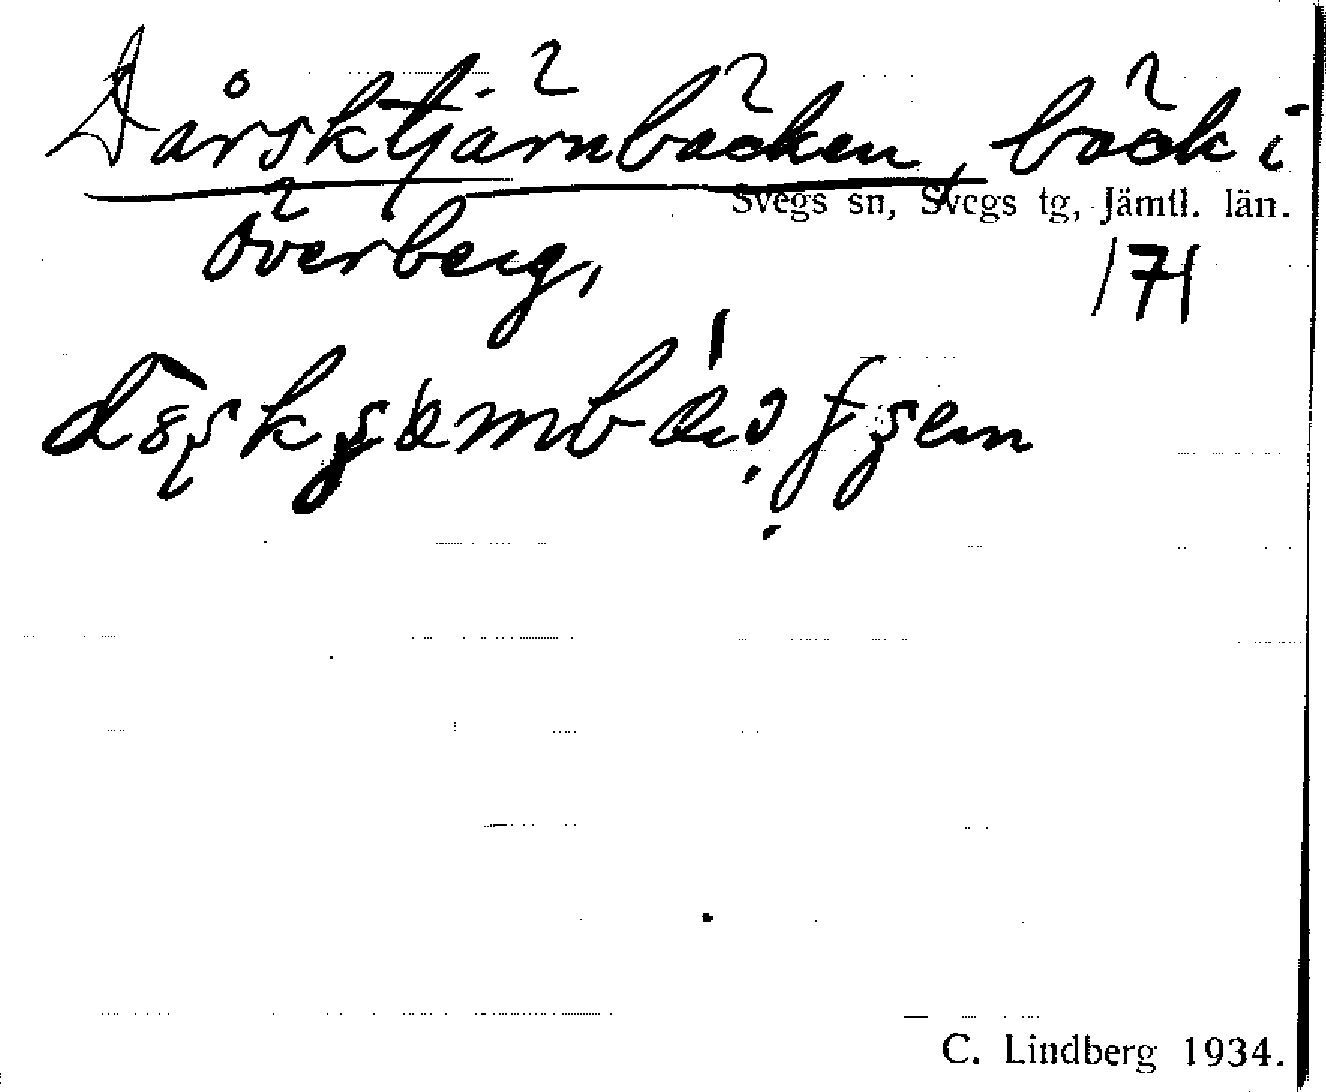 Dårsktjärnbäcken, bäck i
Svegs sn, Svegs tg, Jämtl. län.
Överberg,
171
C. Lindberg 1934.